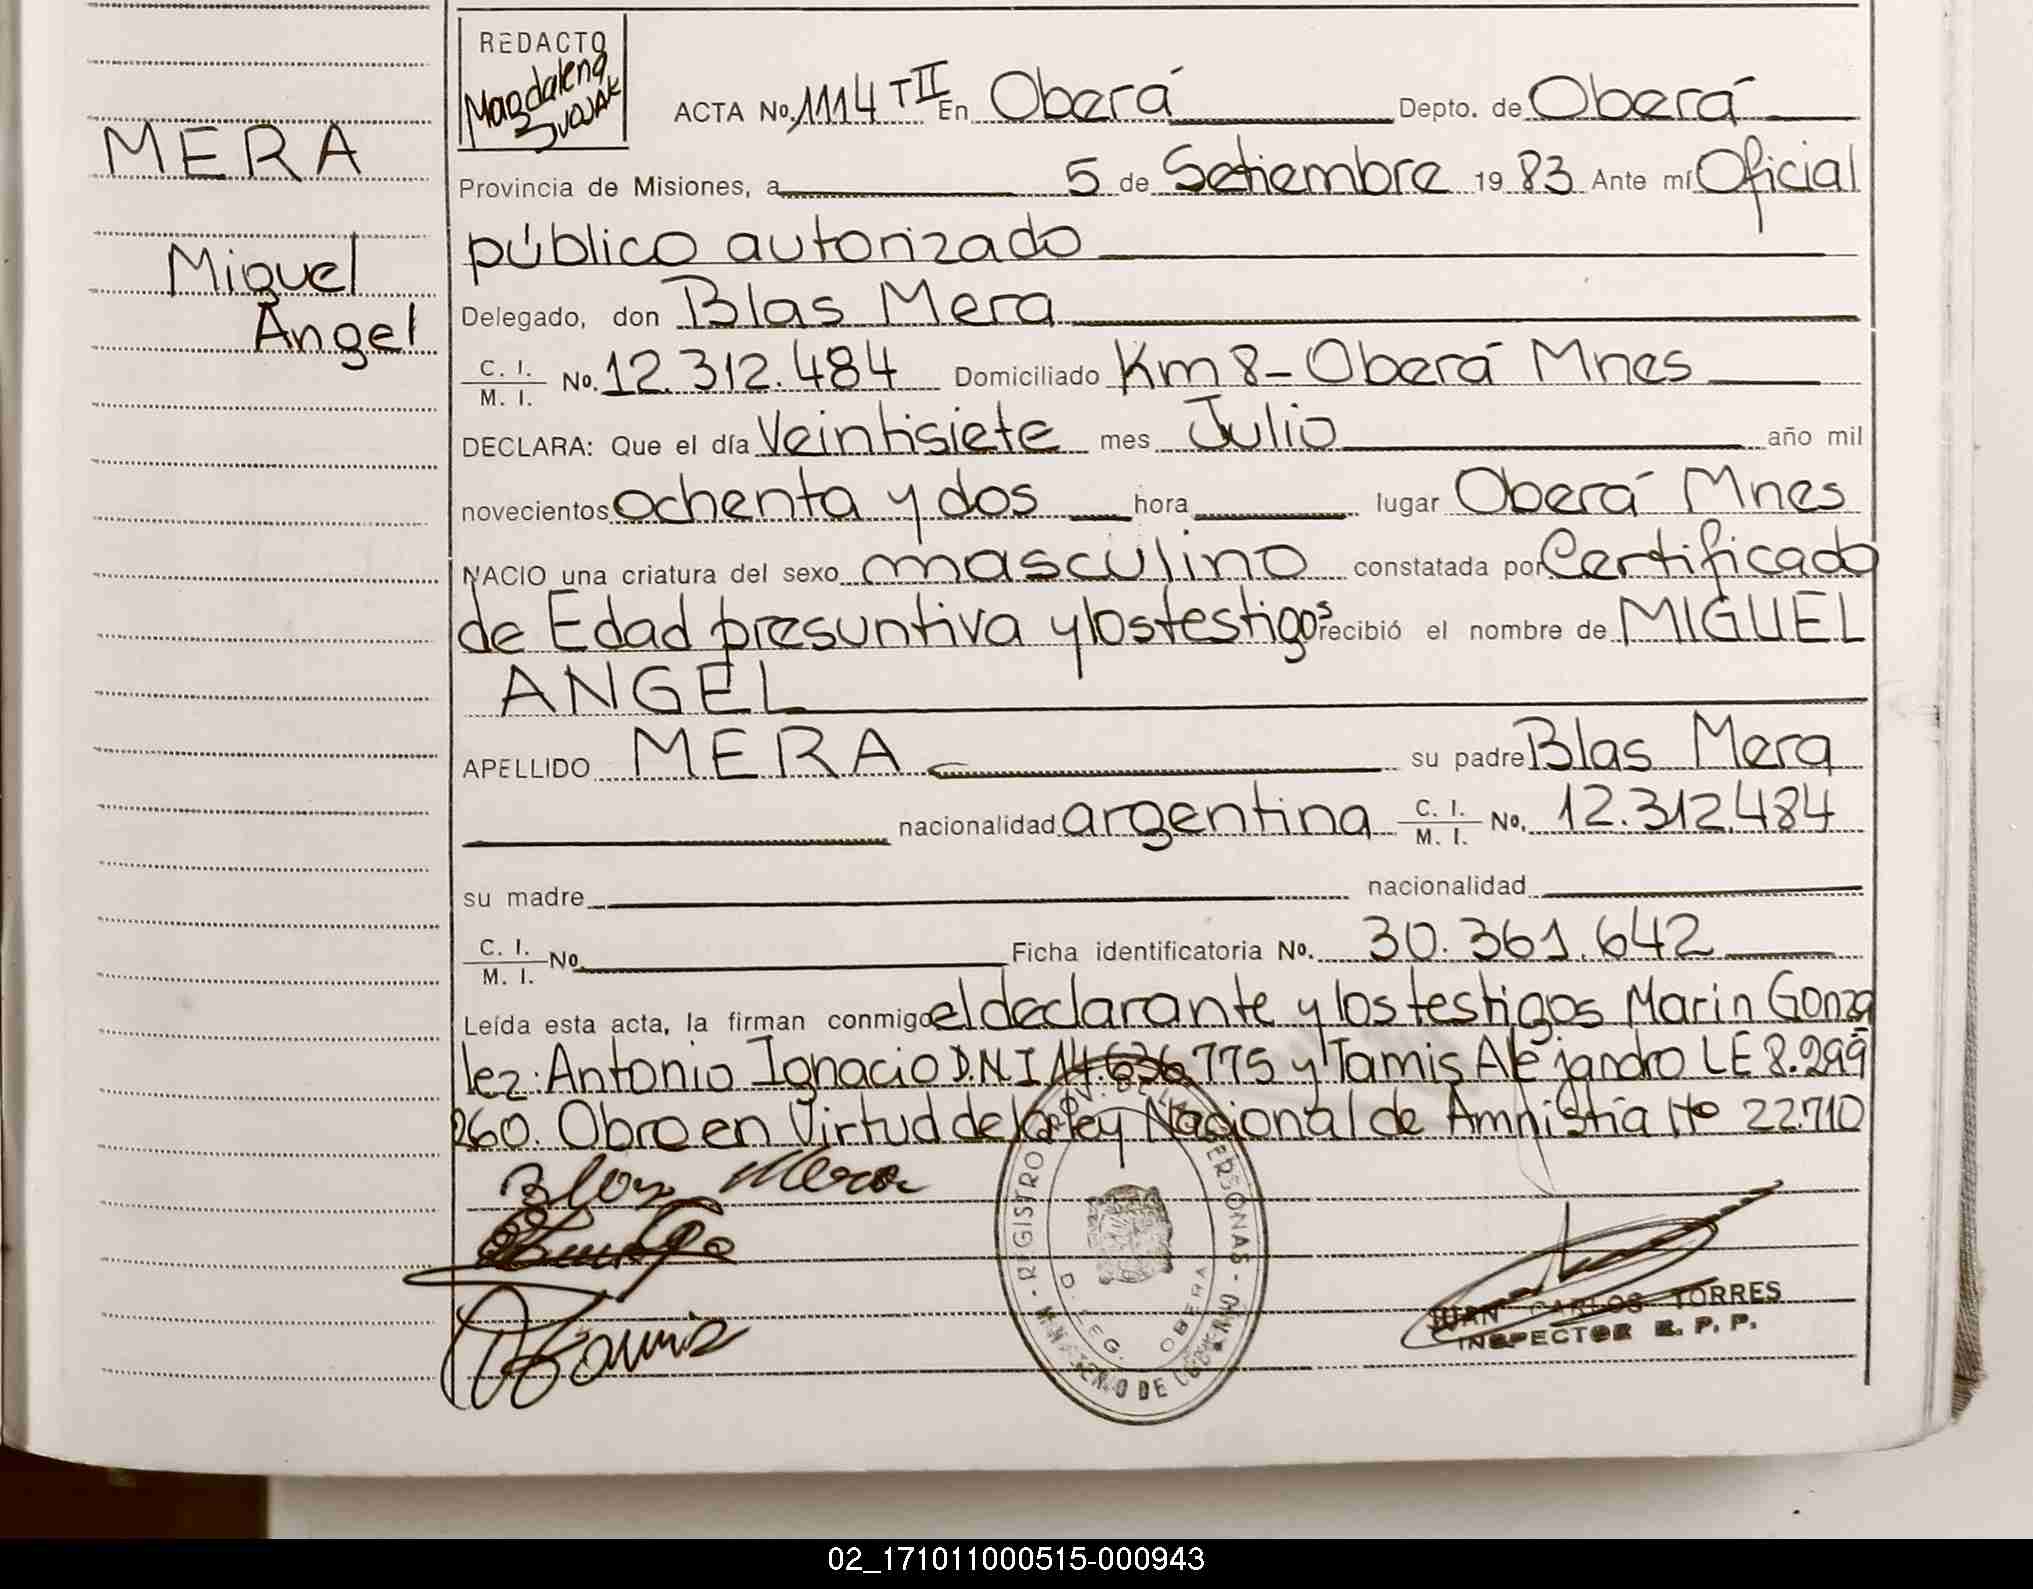 REDACTO
Magdalena
ACTA No. 1114 TII En Oberá Depto. de Oberá
MERA
Provincia de Misiones, a 5 de Setiembre 1983 Ante mí Oficial
público autorizado
Miguel
Angel
Delegado, don Blas Mera
C. I.
M. I. No. 12.312.484 Domiciliado Km 8 - Oberá Mnes
DECLARA: Que el día Veintisiete mes Julio año mil
novecientos ochenta y dos hora lugar Oberá Mnes
NACIO una criatura del sexo masculino constatada por Certificado
de Edad presuntiva y los testigos recibió el nombre de MIGUEL
ANGEL
APELLIDO MERA su padre Blas Mera
nacionalidad argentina C. I. M. I. No. 12.312.484
su madre nacionalidad
C. I. M. I. No. Ficha identificatoria No. 30.361.642
Leída esta acta, la firman conmigo el declarante y los testigos Marin Gonza
lez Antonio Ignacio D.N.I 14.636.775 y Tamis Alejandro LE 8.299
260. Obro en Virtud de la Ley Nacional de Amnistía No 22.710
Blas Mera
REGISTRO PROV. DE LAS PERSONAS
DELEG. OBERA
MINISTERIO DE GOBIERNO
JUAN CARLOS TORRES
INSPECTOR R. P. P.
02_171011000515-000943